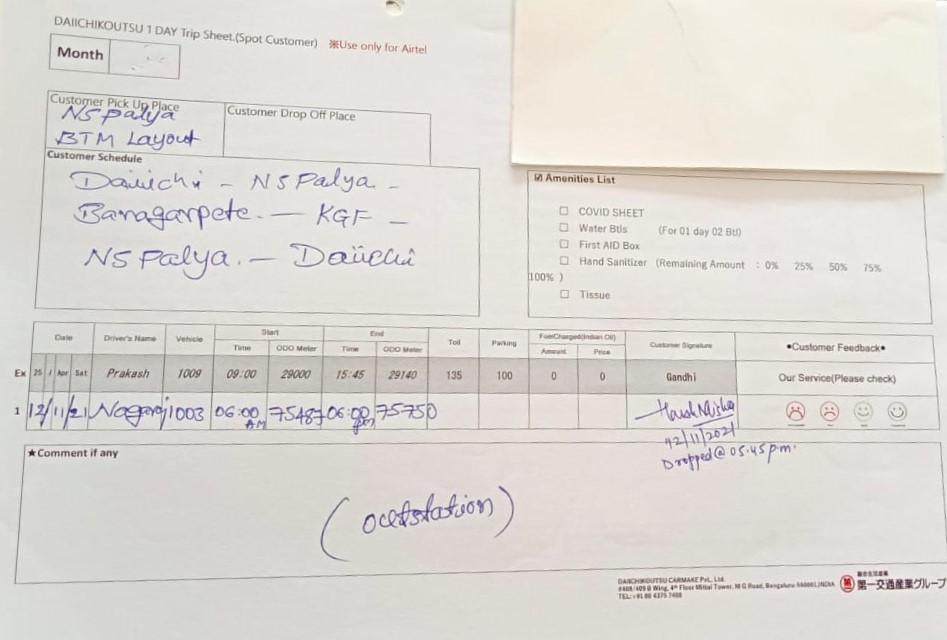 DAIICHIKOUTSU 1 DAY Trip Sheet.(Spot Customer) ※Use only for Airtel
Month
Customer Pick Up Place
NS Palya
BTM Layout
Customer Drop Off Place
Customer Schedule
Daiichi - NS Palya -
Bangarpete. - KGF -
NS Palya. - Daiichi
☑ Amenities List
☐ COVID SHEET
☐ Water Btls (For 01 day 02 Btl)
☐ First AID Box
☐ Hand Sanitizer (Remaining Amount : 0% 25% 50% 75%
100% )
☐ Tissue
Date Driver's Name Vehicle Start End Toll Parking FuelCharged(Indian Oil) Customer Signature •Customer Feedback•
Time ODO Meter Time ODO Meter Amount Price
Ex 25 / Apr Sat Prakash 1009 09:00 29000 15:45 29140 135 100 0 0 Gandhi Our Service(Please check)
1 12/11/21 Nagaraj 1003 06:00 AM 75487 06:00 pm 75750
12/11/2021
Dropped @ 05.45 p.m.
★Comment if any
(outstation)
DAIICHIKOUTSU CARMAKE Pvt., Ltd.
#408/409 B Wing, 4th Floor Mittal Tower, M G Road, Bengaluru 560001,INDIA
TEL:+91 80 4375 7488
総合生活産業
第一交通産業グループ